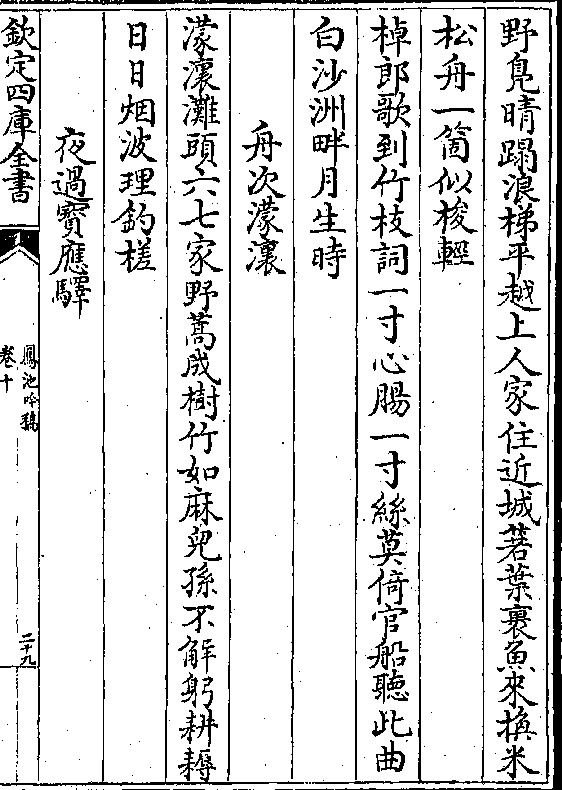 野鳬晴蹋浪梯平越上人家住近城箬葉裹魚來換米
松舟一箇似梭輕
棹郎歌到竹枝詞一寸心腸一寸絲莫倚官船聽此曲
白沙洲畔月生時
舟次濛瀼
濛瀼灘頭六七家野蒿成樹竹如麻兒孫不解躬耕耨
日日烟波理釣槎
夜過寳應驛
欽定四庫全書
鳳池吟稿
卷十
二十九